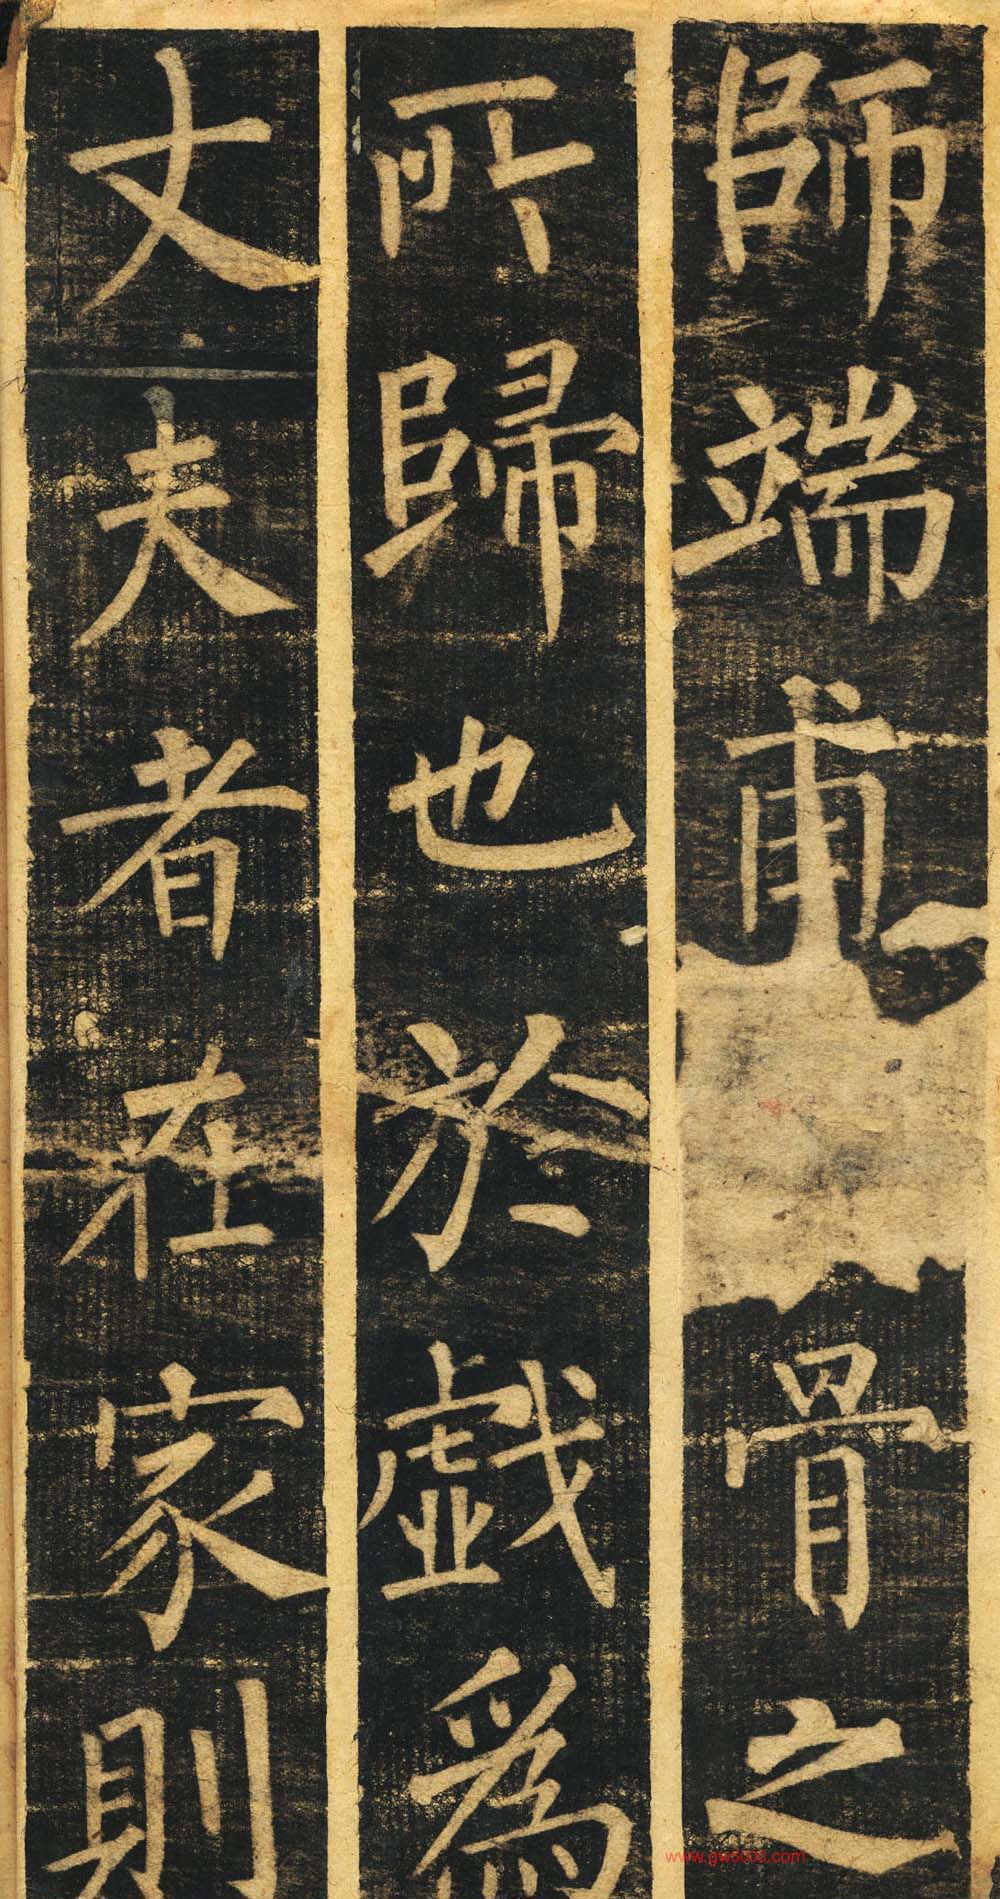 師端甫骨之
所歸也於戲為
丈夫者在家則
www.gw5000.com